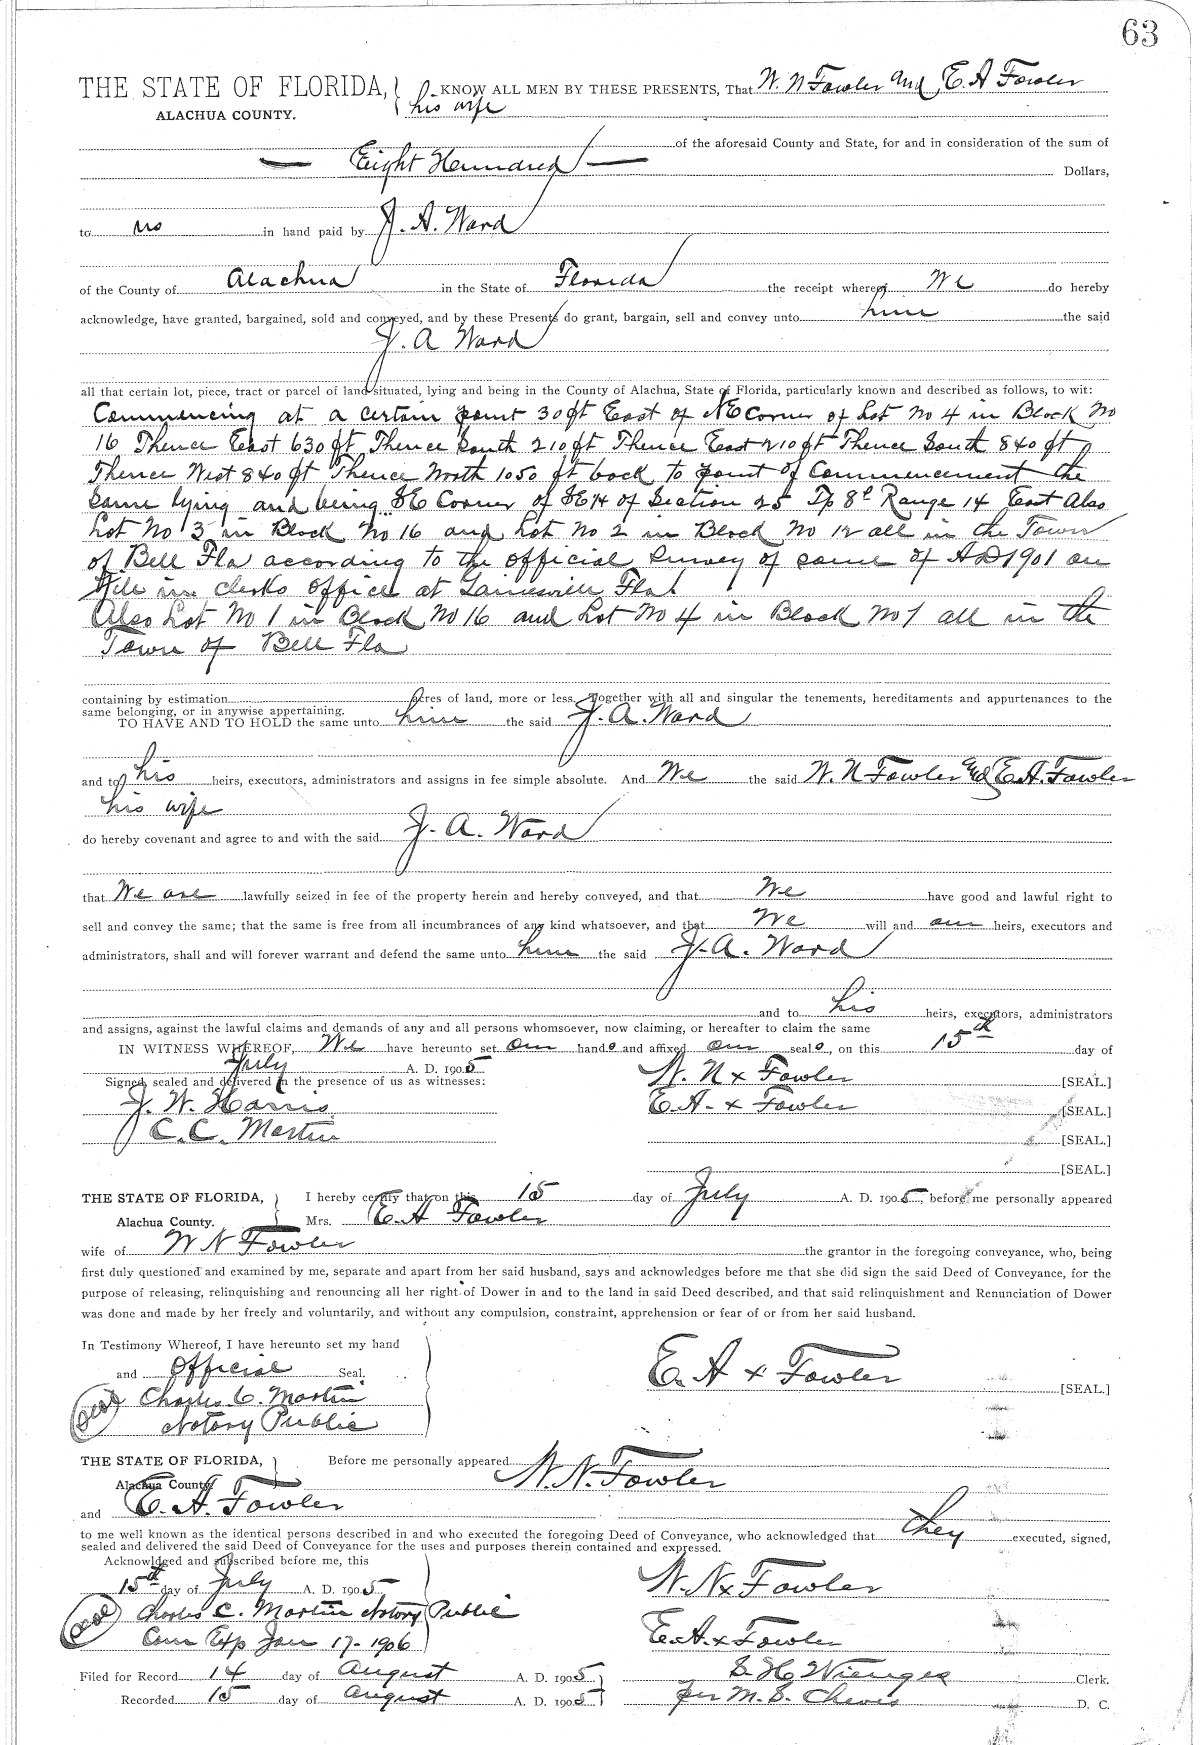 63
THE STATE OF FLORIDA, KNOW ALL MEN BY THESE PRESENTS, That W. N Fowler and E. A Fowler
ALACHUA COUNTY. his wife
of the aforesaid County and State, for and in consideration of the sum of
Eight Hundred Dollars,
to us in hand paid by J. A. Ward
of the County of Alachua in the State of Florida the receipt whereof we do hereby
acknowledge, have granted, bargained, sold and conveyed, and by these Presents do grant, bargain, sell and convey unto him the said
J. A Ward
all that certain lot, piece, tract or parcel of land situated, lying and being in the County of Alachua, State of Florida, particularly known and described as follows, to wit:
Commencing at a certain point 30 ft East of NE Corner of Lot No 4 in Block No
16 Thence East 630 ft Thence South 210 ft Thence East 210 ft Thence South 840 ft
Thence West 840 ft Thence North 1050 ft back to point of Commencement the
same lying and being SE Corner of SE 1/4 of Section 25 Tp 8 Range 14 East Also
Lot No 3 in Block No 16 and Lot No 2 in Block No 12 all in the Town
of Bell Fla according to the official survey of same of AD 1901 on
file in clerks office at Gainesville Fla
Also Lot No 1 in Block No 16 and Lot No 4 in Block No 1 all in the
Town of Bell Fla
containing by estimation acres of land, more or less. Together with all and singular the tenements, hereditaments and appurtenances to the
same belonging, or in anywise appertaining.
TO HAVE AND TO HOLD the same unto him the said J. A. Ward
and to his heirs, executors, administrators and assigns in fee simple absolute. And We the said W. N Fowler and E. A. Fowler
his wife
do hereby covenant and agree to and with the said J. A. Ward
that We are lawfully seized in fee of the property herein and hereby conveyed, and that We have good and lawful right to
sell and convey the same; that the same is free from all incumbrances of any kind whatsoever, and that We will and our heirs, executors and
administrators, shall and will forever warrant and defend the same unto him the said J. A. Ward
and to his heirs, executors, administrators
and assigns, against the lawful claims and demands of any and all persons whomsoever, now claiming, or hereafter to claim the same
IN WITNESS WHEREOF, We have hereunto set our hands and affixed our seals, on this 15th day of
July A. D. 1905 W. N x Fowler [SEAL.]
Signed, sealed and delivered in the presence of us as witnesses:
J. W. Harris E. A. x Fowler [SEAL.]
C. C. Martin [SEAL.]
[SEAL.]
THE STATE OF FLORIDA, I hereby certify that on this 15 day of July A. D. 1905, before me personally appeared
Alachua County. Mrs. E. A Fowler
wife of W N Fowler the grantor in the foregoing conveyance, who, being
first duly questioned and examined by me, separate and apart from her said husband, says and acknowledges before me that she did sign the said Deed of Conveyance, for the
purpose of releasing, relinquishing and renouncing all her right of Dower in and to the land in said Deed described, and that said relinquishment and Renunciation of Dower
was done and made by her freely and voluntarily, and without any compulsion, constraint, apprehension or fear of or from her said husband.
In Testimony Whereof, I have hereunto set my hand
and Official Seal. E. A x Fowler [SEAL.]
seal Charles C. Martin
Notary Public
THE STATE OF FLORIDA, Before me personally appeared W. N. Fowler
Alachua County
and E. A. Fowler
to me well known as the identical persons described in and who executed the foregoing Deed of Conveyance, who acknowledged that they executed, signed,
sealed and delivered the said Deed of Conveyance for the uses and purposes therein contained and expressed.
Acknowldged and subscribed before me, this
15th day of July A. D. 1905 W. N x Fowler
seal Charles C. Martin Notary Public
Com Exp Jan 17-1906 E. A. x Fowler
Filed for Record 14 day of August A. D. 1905 S. H. Wienges Clerk.
Recorded 15 day of August A. D. 1905 per M. S. Cheves D. C.